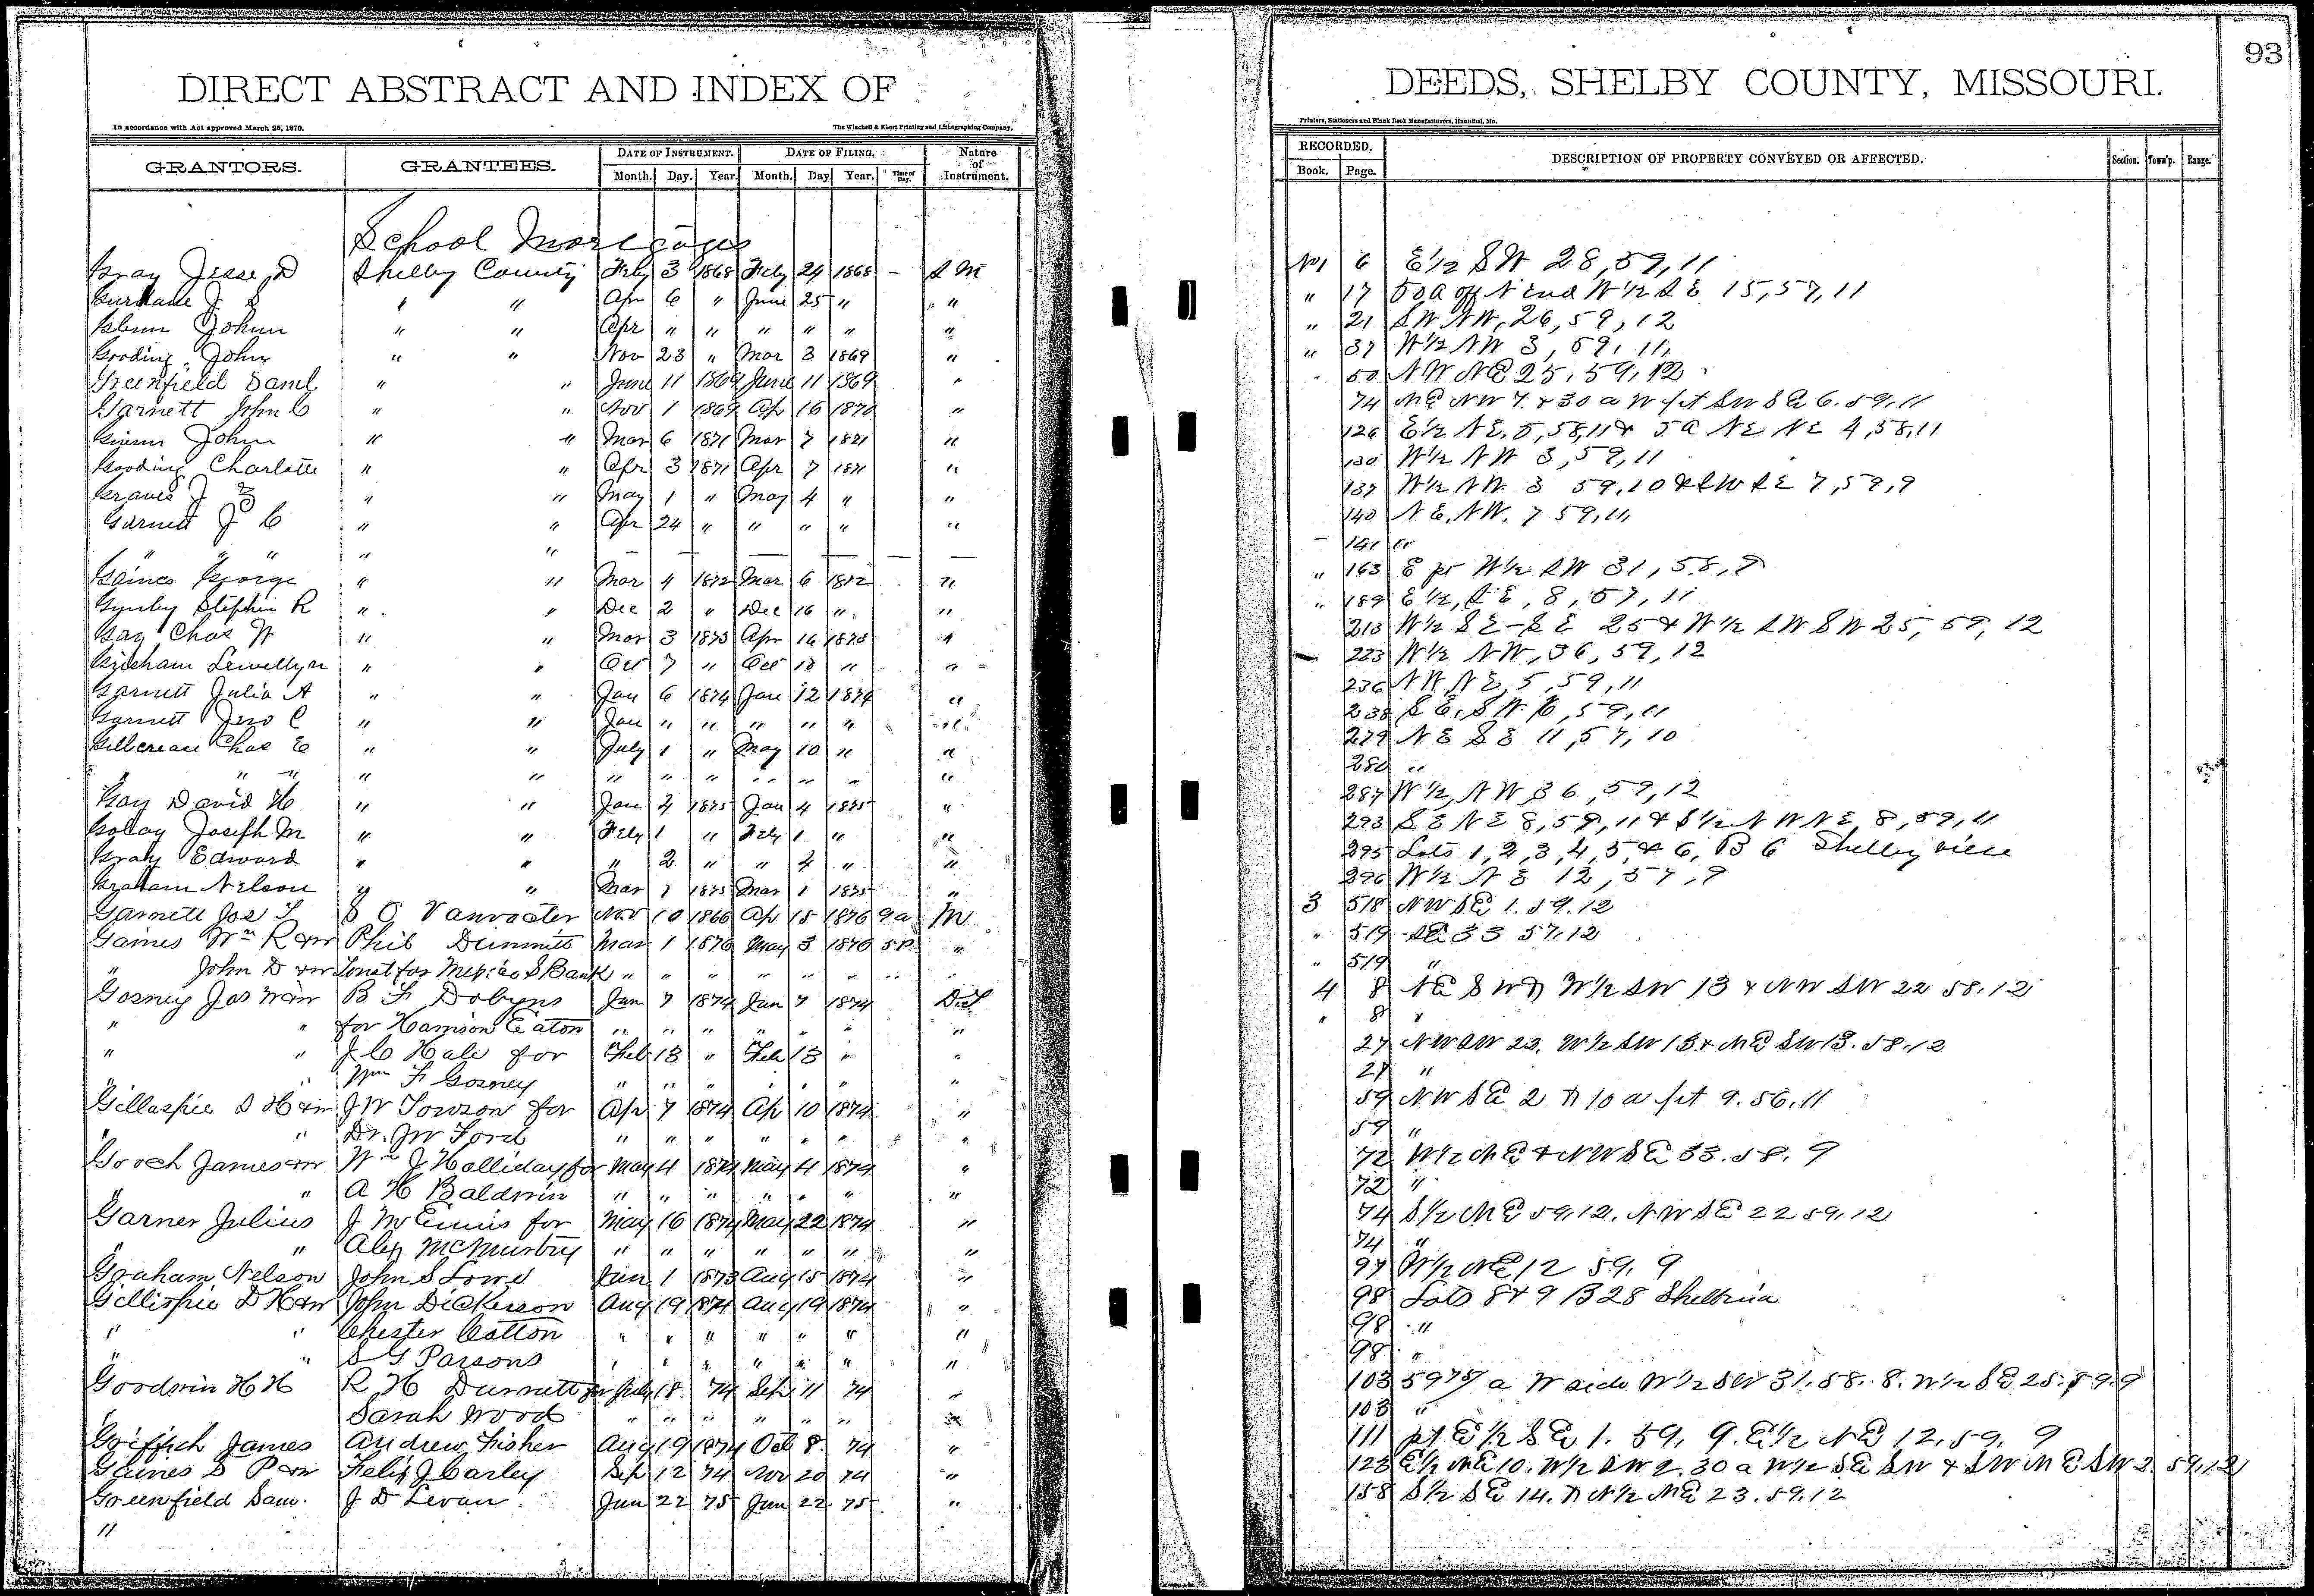 93
DIRECT ABSTRACT AND INDEX OF DEEDS, SHELBY COUNTY, MISSOURI.
In accordance with Act approved March 25, 1870. The Winchell & Ebert Printing and Lithographing Company, Printers, Stationers and Blank Book Manufacturers, Hannibal, Mo.
GRANTORS. GRANTEES. DATE OF INSTRUMENT. DATE OF FILING. Nature of Instrument. RECORDED. DESCRIPTION OF PROPERTY CONVEYED OR AFFECTED. Section. Town'p. Range.
Month. Day. Year. Month. Day Year. Time of Day. Book. Page.
School Mortgages
Gray Jesse D Shelby County Feby 3 1868 Feby 24 1868 - S M No1 6 E½ SW 28,59,11
J S " " Apr 6 " June 25 " " " 17 50a off N End W½ SE 15,57,11
Glenn Johnn " " Apr " " " " " " " 21 SW NW, 26,59,12
Gooding John " " Nov 23 " Mar 3 1869 " " 37 W½ NW 3,59,11,
Greenfield Saml " " June 11 1869 June 11 1869 " " 50 NW NE 25,59,12
Garnett John C " " Nov 1 1869 Ap 16 1870 " 74 NE NW 7. & 30 a W pt SW SE 6.59,11
John " " Mar 6 1871 Mar 7 1871 " 126 E½ NE, 5,58,11 & 5a NE NE 4,58,11
Gooding Charlotte " " Apr 3 1871 Apr 7 1871 " 130 W½ NW 3,59,11
Graves J " " May 1 " May 4 " " 137 W½ NW 3 59,10 & SW SE 7,59,9
Garnett J C " " Apr 24 " " " " " 140 NE, NW. 7 59,11,
" " " " " — — — — — — 141 "
Gaines George " " Mar 4 1872 Mar 6 1872 " " 163 E pt W½ SW 31,58,9
Stephen R " " Dec 2 " Dec 16 " " " 189 E½, SE, 8,57,11
Gay Chas W " " Mar 3 1873 Apr 16 1873 " 213 W½ SE-SE 25 & W½ SW SW 25,59,12
Lewellyn " " Oct 7 " Oct 10 " " 223 W½ NW, 36,59,12
Garnett Julia A " " Jan 6 1874 Jan 12 1874 " 236 NW, NE, 5,59,11
Garnett Jno C " " Jan " " " " " " 238 SE, SW. 6,59,11
Gillcrease Chas E " " July 1 " May 10 " " 279 NE SE 11,57,10
" " " " " " " " " " " " 280 "
Gay David H " " Jan 4 1875 Jan 4 1875 " 287 W½, NW 36,59,12
Joseph M " " Feby 1 " Feby 1 " " 293 SE NE 8,59,11 & S½ NW NE, 8,59,11
Gray Edward " " " 2 " " 4 " " 295 Lots 1,2,3,4,5,& 6, B 6 Shelbyville
Graham Nelson " " Mar 1 1875 Mar 1 1875 " 296 W½ NE 12,57,9
Garnett Jos T S O Nov 10 1866 Ap 15 1876 9a M 3 518 NW SE 1.59.12
Gaines Wm R &w Phil Dimmitt Mar 1 1876 May 3 1876 5P. " " 519 SE 33 57,12
" John D &w for Mexico S Bank " " " " " " " " " 519 "
Gosney Jas W &w B F Dobyns Jan 7 1874 Jan 7 1874 D.T. 4 8 NE SW & W½ SW 13 & NW SW 22 58.12
" " for Harrison Eaton " " " " " " " " 8 "
" " J C Hale for Feb 13 " Feb 13 " " 27 NW SW 22, W½ SW 13 & NE SW 13.58.12
" " Wm F Gosney " " " " " " " 27 "
Gillaspie D H &w J W Towson for Ap 7 1874 Ap 10 1874 " 59 NW SE 2 & 10 a pt 9.56,11
" " Dr. JW Ford " " " " " " " 59 "
Gooch James &w Wm J Halliday for May 4 1874 May 4 1874 " 72 W½ NE & NW SE 33.58.9
" " A H Baldwin " " " " " " " 72 "
Garner Julius J M Ennis for May 16 1874 May 22 1874 " 74 S½ NE 59,12, NW SE 22 59,12
" " Alex McMurtry " " " " " " " 74 "
Graham Nelson John S Lowe Jan 1 1873 Aug 15 1874 " 97 W½ NE 12 59,9
Gillispie D H &w John Dickerson Aug 19 1874 Aug 19 1874 " 98 Lots 8 & 9 B 28 Shelbina
" " Chester Cotton " " " " " " " 98 "
" " S G Parsons " " " " " " " 98 "
Goodwin H H R H Durrett for July 18 74 Sep 11 74 " 103 a W side W½ SW 31.58.8. W½ SE 25.59.9
" Sarah Wood " " " " " " " 103 "
Griffith James Andrew Fisher Aug 19 1874 Oct 8 74 " 111 pt E½ SE 1.59,9. E½ NE 12.59,9
Gaines S P &w Felix J Carley Sep 12 74 Nov 20 74 " 123 E½ NE 10. W½ SW 2. 30 a W½ SE SW & SW NE SW 2.59.12
Greenfield Sam. J D Levan Jan 22 75 Jan 22 75 " 158 S½ SE 14. & N½ NE 23.59.12
"